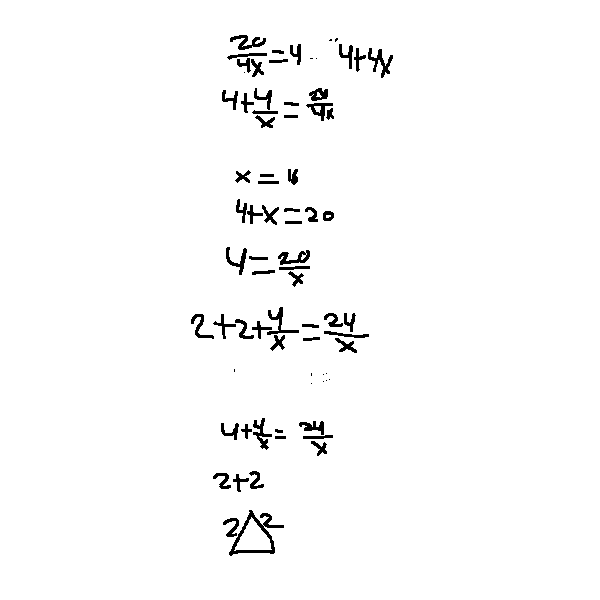 20/4x=4 4+4x
4+4/x=20/4x
x=16
4+x=20
4=20/x
2+2+4/x=24/x
4+4/x=24/x
2+2
2 2